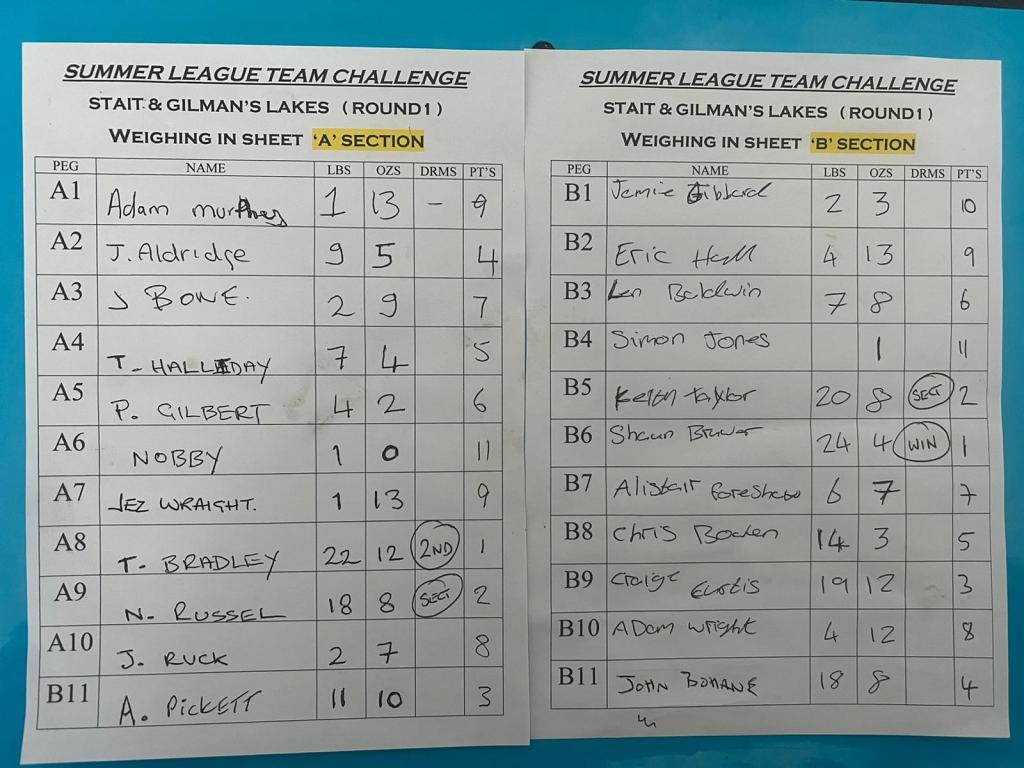 SUMMER LEAGUE TEAM CHALLENGE
STAIT & GILMAN'S LAKES (ROUND1)
WEIGHING IN SHEET 'A' SECTION
PEG NAME LBS OZS DRMS PT'S
A1 Adam murphey 1 13 - 9
A2 J. Aldridge 9 5 4
A3 J BONE. 2 9 7
A4 T- HALLIDAY 7 4 5
A5 P. GILBERT 4 2 6
A6 NOBBY 1 0 11
A7 JEZ WRAIGHT. 1 13 9
A8 T- BRADLEY 22 12 2ND 1
A9 N. RUSSEL 18 8 SECT 2
A10 J. RUCK 2 7 8
B11 A. PICKETT 11 10 3
SUMMER LEAGUE TEAM CHALLENGE
STAIT & GILMAN'S LAKES (ROUND1)
WEIGHING IN SHEET 'B' SECTION
PEG NAME LBS OZS DRMS PT'S
B1 Jamie Gibbard 2 3 10
B2 Eric Hall 4 13 9
B3 Len Baldwin 7 8 6
B4 Simon Jones 1 11
B5 Kevin taylor 20 8 SECT 2
B6 Shaun 24 4 WIN 1
B7 Alistair foreshaw 6 7 7
B8 Chris Boden 14 3 5
B9 Craige Curtis 19 12 3
B10 ADam wright 4 12 8
B11 JOHN BOHANE 18 8 4